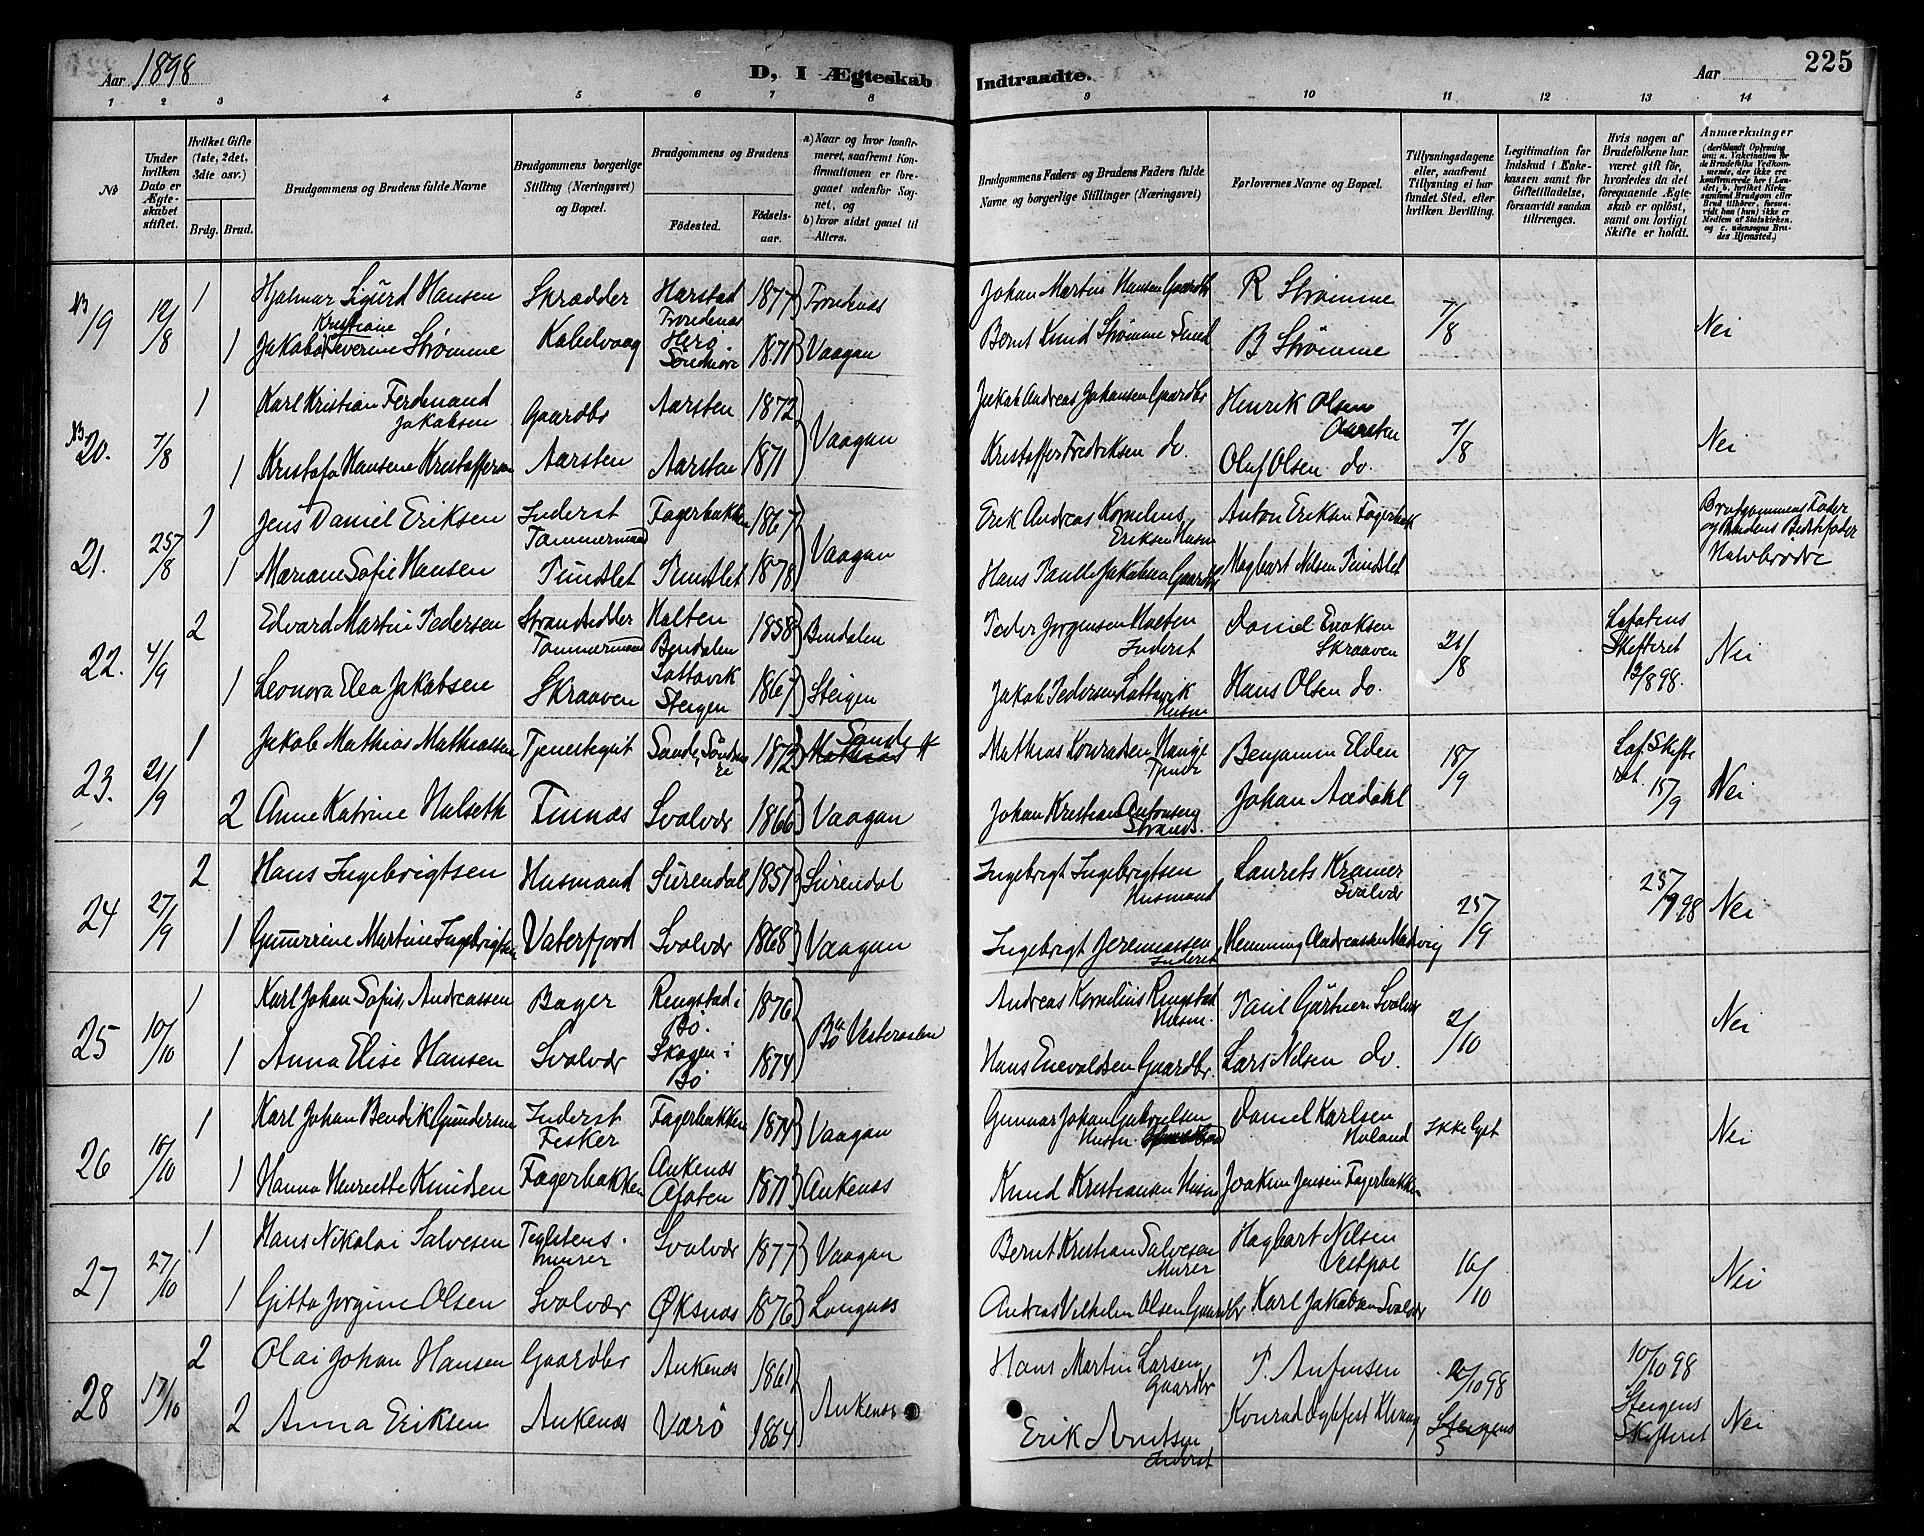 Aar 1898
D, I Ægteskab Indtraadte.
Aar 225
1 2 3 4 5 6 7 8 9 10 11 12 13 14
No
Under hvilken Dato er Ægteskabet stiftet.
Hvilket Gifte (1ste, 2det, 3die osv.)
Brdg. Brud.
Brudgommens og Brudens fulde Navne
Brudgommens borgerlige Stilling (Næringsvei) og Bopæl.
Brudgommens og Brudens
Fødested.
Fødselsaar.
a) Naar og hvor konfirmeret, saafremt Konfirmationen er foregaaet udenfor Sognet, og
b) hvor sidst gaaet til Alters.
Brudgommens Faders og Brudens Faders fulde Navne og borgerlige Stillinger (Næringsvei)
Forlovernes Navne og Bopæl.
Tillysningsdagene eller, saafremt Tillysning ei har fundet Sted, efter hvilken Bevilling.
Legitimation for Indskud i Enkekassen samt for Giftetilladelse, forsaavidt saadan tiltrænges.
Hvis nogen af Brudefolkene har været gift før, hvorledes da det foregaaende Ægteskab er opløst, samt om lovligt Skifte er holdt.
Anmærkninger (deriblandt Oplysning om: a. Vakcination for de Brudefolks Vedkommende, der ikke ere konfirmerede her i Landet; b. hvilket Kirkesamfund Brudgom eller Brud tilhører, forsaavidt han (hun) ikke er Medlem af Statskirken. og c. udensogns Brudes Hjemsted.)
19 12/8 1 Hjalmar Sigurd Hansen Skrædder Harstad Trondenæs 1877 Trondenæs Johan Martin Hansen Gaardbr R Strømme 7/8 Nei
1 Jakoba Kristiane Severine Strømme Kabelvaag Herø Søndmøre 1871 Vaagan Bernt Knud Strømme Smed B Strømme
20. 7/8 1 Karl Kristian Ferdinand Jakobsen Gaardbr Aarsten 1872 Vaagan Jakob Andreas Johansen Gaardbr Henrik Olsen Aarsten 7/8 Nei
1 Kristofa Hansine Kristoffersen Aarsten Aarsten 1871 Kristoffer Fredriksen do. Oluf Olsen do.
21. 25/8 1 Jens Daniel Eriksen Inderst Tømmermand Fagerbakken 1867 Vaagan Erik Andreas Kornelius Eriksen Husm Anton Eriksen Fagerbak Brudgommens Fader og Brudens Bedstefader Halvbrødre
1 Mariane Sofie Hansen Pundslet Pundslet 1878 Hans Paulle Jakobsen Gaardbr Hagbart Nilsen Pundslet
22. 4/9 2 Edvard Martin Pedersen Strandsidder Tømmermand Holten Bendalen 1858 Bendalen Peder Jørgensen Holten Inderst Daniel Eriksen Skraaven 21/8 Lofotens Skifteret 12/8 98. Nei
1 Leonora Elea Jakobsen Skraaven Lattavik Steigen 1867 Steigen Jakob Pedersen Lattavik Husm Hans Olsen do.
23. 21/9 1 Jakob Mathias Mathiassen Tjenestegut Sande, Søndmøre 1872 Sande Mathias Konradsen Hauge Benjamin Elden 18/9 Lof. Skifteret. 15/9 Nei
2 Anne Katrine Halseth Finnæs Svolvær 1866 Vaagan Johan Kristian Antonsen Strands. Johan Aadahl
24 27/9 2 Hans Ingebrigtsen Husmand Surendal 1851 Surendal Ingebrigt Ingebrigtsen Husmand Laurets Kramer Svolvær 25/9 25/9 98 Nei
1 Gunerine Martine Ingebrigtsen Vaterfjord Svolvær 1868 Vaagan Ingebrigt Jeremiassen Inderst Henning Andreassen
25 10/10 1 Karl Johan Sofus Andreassen Bager Ringstad i Bø. 1876 Bø Vesteraalen Andreas Kornelius Ringstad Husm. Paul Gärtner Svolvær 2/10 Nei
1 Anna Elise Hansen Svolvær Skagen i Bø 1874 Hans Enevoldsen Gaardbr. Lars Nilsen do.
26 16/10 1 Karl Johan Bendik Gundersen Inderst Fisker Fagerbakken 1874 Vaagan Gunnar Johan Gabrielsen Husm Daniel Karlsen Holand Ikke lyst Nei
1 Hanna Henriette Knudsen Fagerbakken Ankenæs Ofoten 1871 Ankenæs Knud Kristiansen Husm Joakim Jensen Fagerbakken
27 27/10 1 Hans Nikolai Salvesen Teglstens. murer Svolvær 1877 Vaagan Bernt Kristian Salvesen Murer Hagbart Nilsen Vestpol 16/10 Nei
1 Gitta Jørgine Olsen Svolvær Øksnæs 1876 Langnes Andreas Vilhelm Olsen Gaardbr Karl Jakobsen Svolvær
28 17/10 2 Olai Johan Hansen Gaardbr Ankenæs 1861 Ankenæs Hans Martin Larsen Gaardbr P. Anfinsen 2/10 98 10/10 98 Steigens Skifteret Nei
2 Anna Eriksen Ankenæs Værø 1864 Erik Arntsen Inderst Konrad Steigens